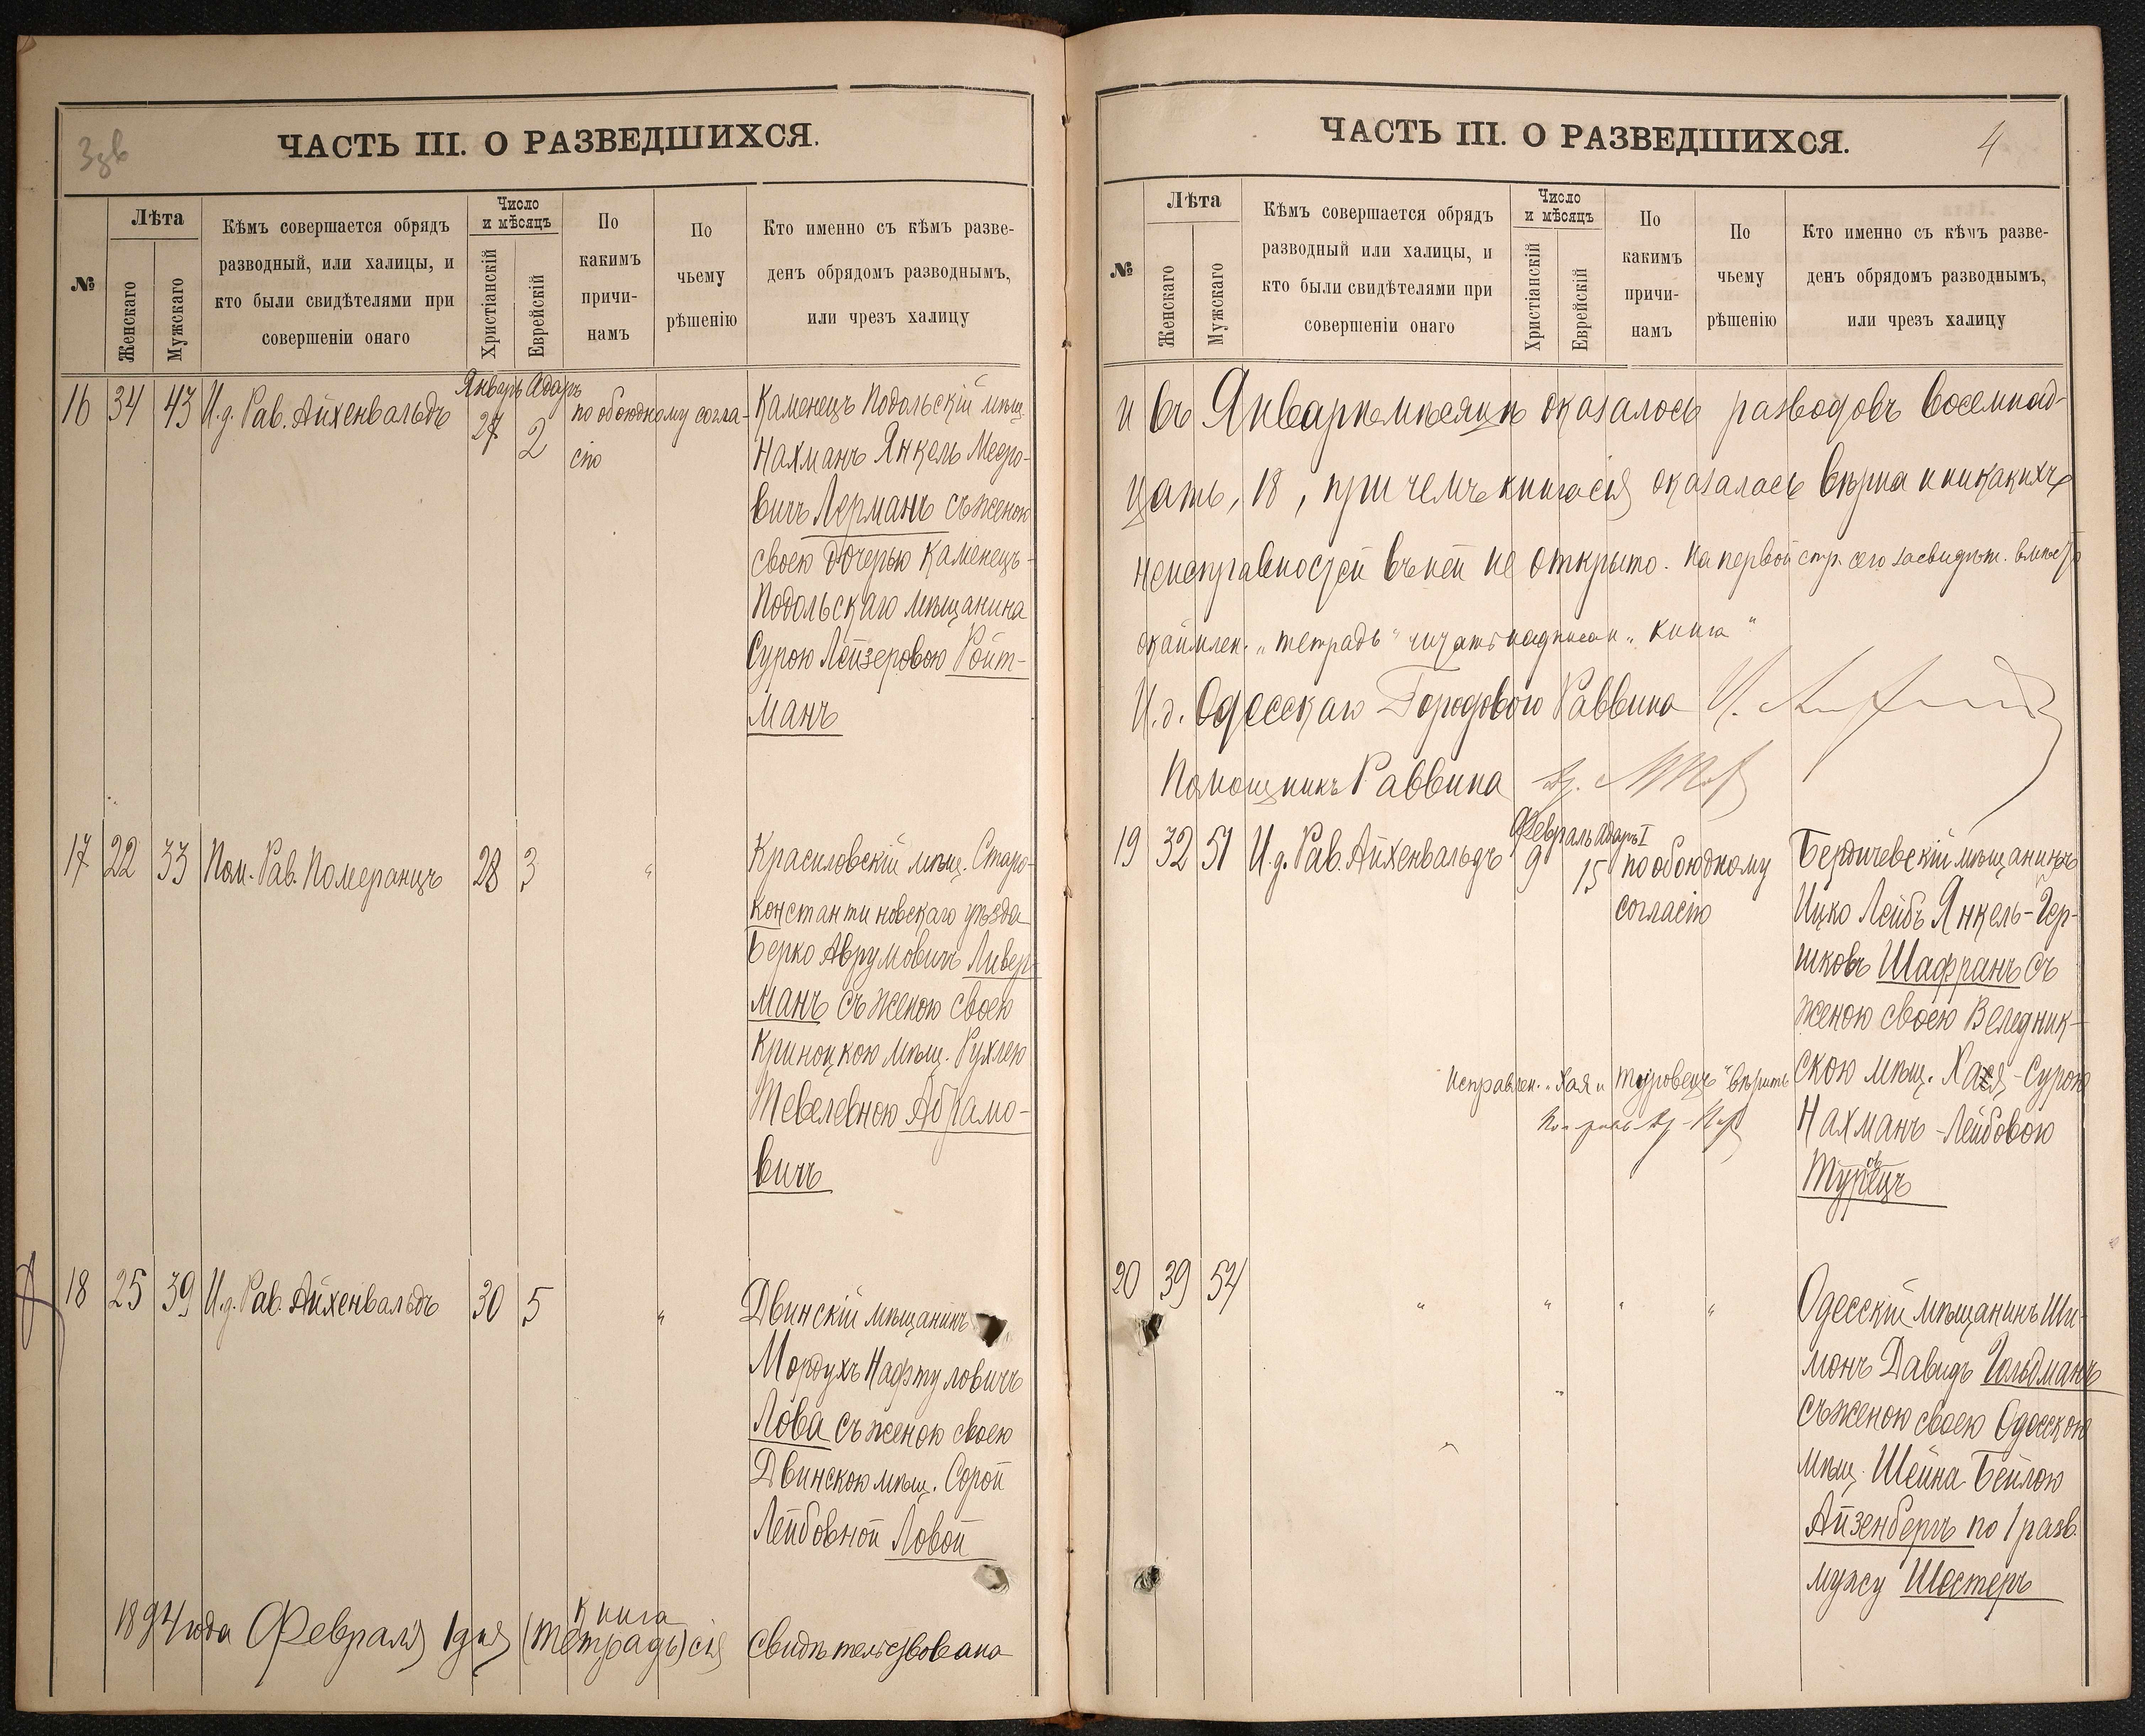 3 зв
ЧАСТЬ III. О РАЗВЕДШИХСЯ.
№
Лѣта
Женскаго
Мужскаго
Кѣмъ совершается обрядъ
разводный, или халицы, и
кто были свидѣтелями при
совершеніи онаго
Число
и мѣсяцъ
Христіанскій
Еврейскій
По
какимъ
причи-
намъ
По
чьему
рѣшенію
Кто именно съ кѣмъ разве-
денъ обрядомъ разводнымъ,
или чрезъ халицу
Январь Адаръ
16 34 43 И.д. Рав. Айхенвальдъ 27 2 по обоюдному согла-
сію
Каменецъ Подольскій мѣщ.
Нахманъ Янкель Меро-
вичъ Лерманъ съ женою
своею дочерью Каменецъ-
Подольскаго мѣщанина
Сурою Лейзеровою Ройт-
манъ
17 22 33 Пом. Рав. Померанцъ 28 3 "
Красиловскій мѣщ. Старо-
константиновскаго уѣзда
Берко Аврумовичъ Ливер-
манъ съ женою своею
Криноцкою мѣщ. Рухлею
Тевелевною Абрамо-
вичъ
18 25 39 И.д. Рав. Айхенвальдъ 30 5 "
Двинскій мѣщанинъ
Мордухъ Нафтуловичъ
Лова съ женою своею
Двинскою мѣщ. Сорой
Лейбовной Ловой
книга
1894 года Февраля 1 дня (тетрадь) сія свидѣтельствована
4
ЧАСТЬ III. О РАЗВЕДШИХСЯ.
№
Лѣта
Женскаго
Мужскаго
Кѣмъ совершается обрядъ
разводный или халицы, и
кто были свидѣтелями при
совершеніи онаго
Число
и мѣсяцъ
Христіанскій
Еврейскій
По
какимъ
причи-
намъ
По
чьему
рѣшенію
Кто именно съ кѣмъ разве-
денъ обрядомъ разводнымъ,
или чрезъ халицу
и въ Январѣ мѣсяцѣ оказалось разводовъ восемнад-
цать, 18, при чемъ книга сія оказалась вѣрна и никакихъ
неисправностей въ ней не открыто. На первой стр. сего засвидѣт. вмѣсто
"тетрадь" читать "книга"
И.д. Одесскаго Городового Раввина
Помощникъ Раввина
Февраль Адаръ I
19 32 51 И.д. Рав. Айхенвальдъ 9 15 по обоюдному
согласію
Бердичевскій мѣщанинъ
Ицко Лейбъ Янкель-Гер-
шковъ Шафранъ съ
женою своею Веледник-
скою мѣщ. Хая-Сурою
Нахманъ-Лейбовою
Туровецъ
Исправлен. "Хая" и "Туровецъ" вѣрить
20 39 54 " " " "
Одесскій мѣщанинъ Ши-
монъ Давидъ Гольдманъ
съ женою своею Одесскою
мѣщ. Шейна Бейлою
Айзенбергъ по 1 разв.
мужу Шостеръ